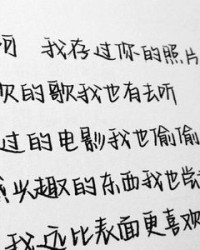 我存过你的照片
欢的歌我也有去听
过的电影我也偷偷
感兴趣的东西我也尝
我远比表面更喜欢